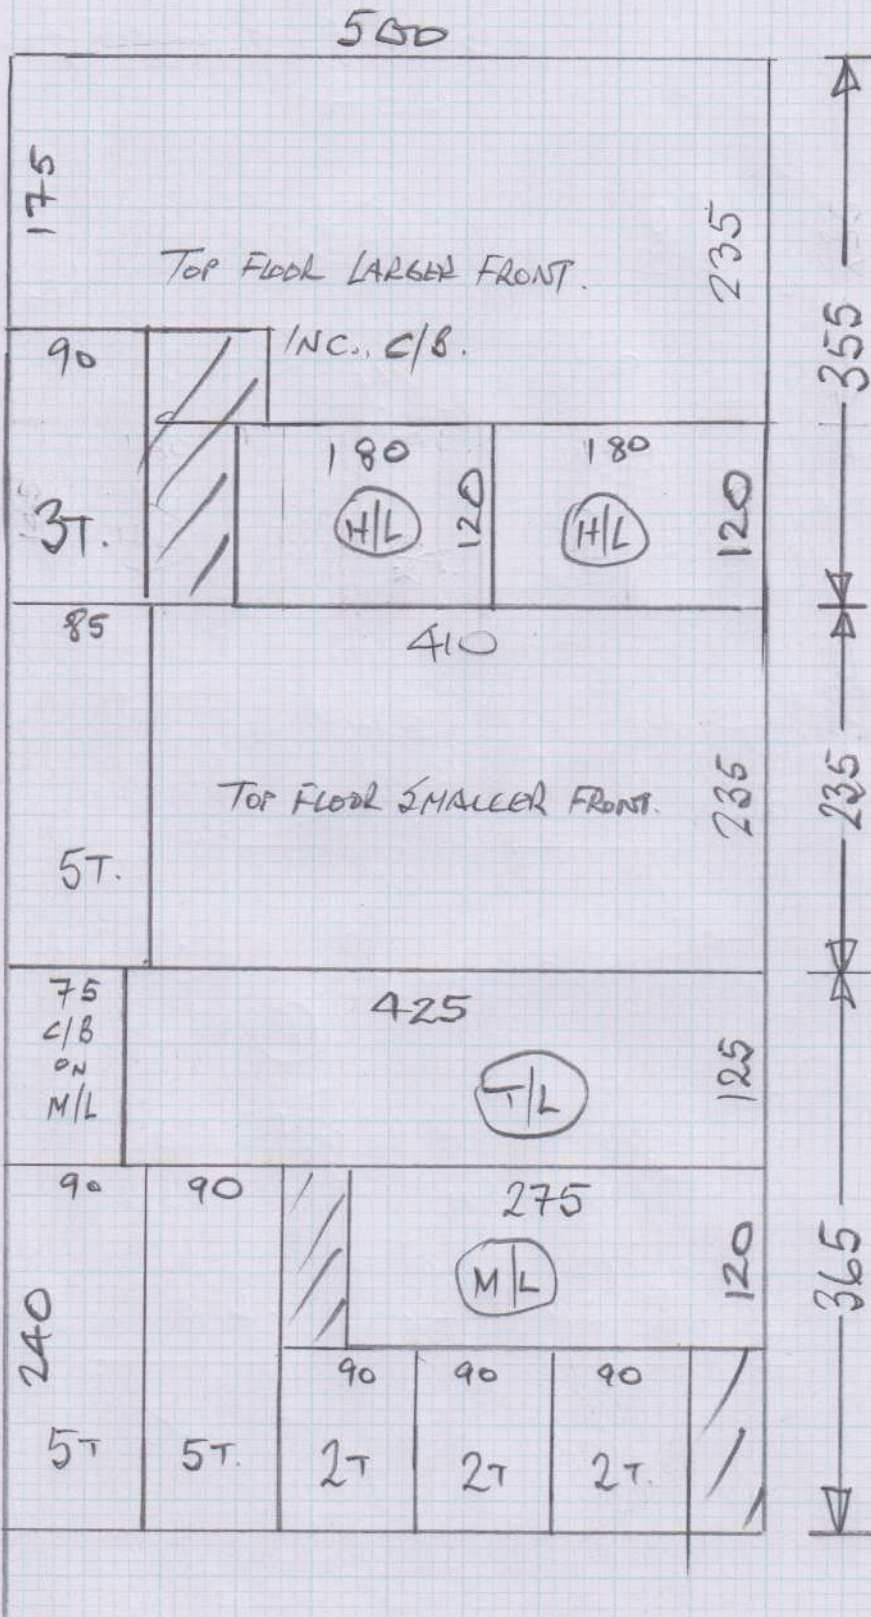 500
175
235
TOP FLOOR LARGER FRONT.
INC., C/B.
355
90
180
180
H/L
120
H/L
120
3T.
85
410
TOP FLOOR SMALLER FRONT.
235
235
5T.
75
C/B
ON
M/L
425
T/L
125
90
90
275
M/L
120
365
240
90
90
90
5T
5T.
2T
2T
2T.